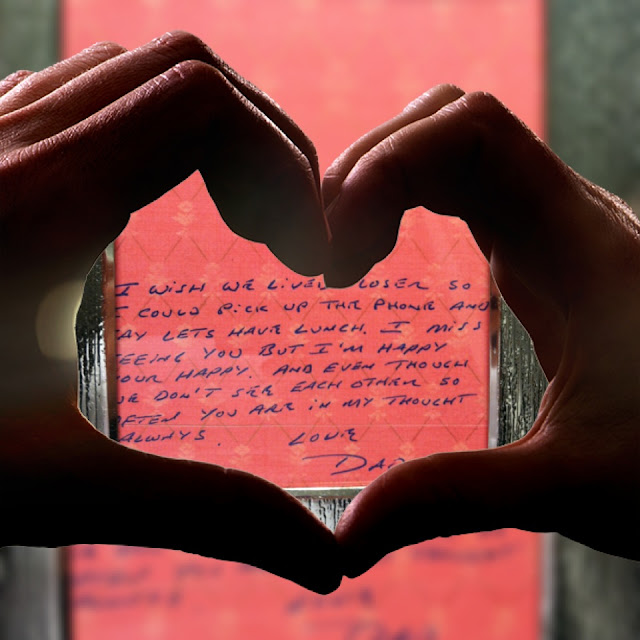 I WISH WE LIVED LOSER SO
I COULD PICK UP THE PHONE AND
AY LETS HAVE LUNCH. I MISS
EEING YOU BUT I'M HAPPY
OUR HAPPY. AND EVEN THOUGH
WE DON'T SEE EACH OTHER SO
FTEN YOU ARE IN MY THOUGHT
ALWAYS. LOVE
DAD